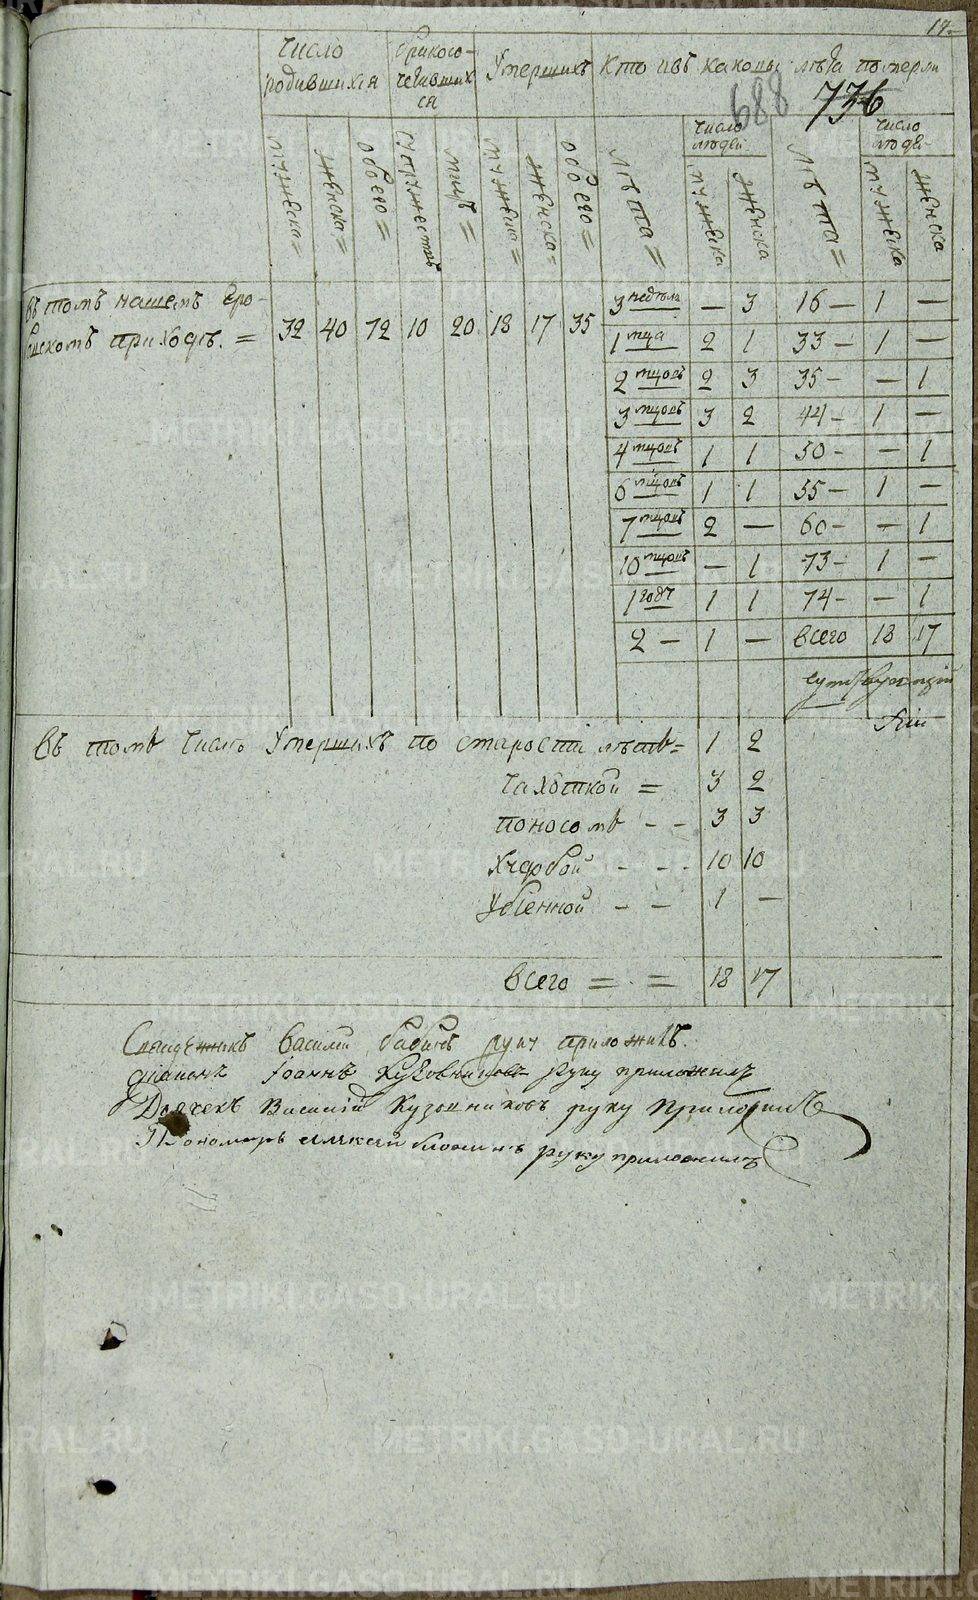 17
Число родившихся
Бракосочетавшихся
Умершихъ
Кто изъ какова лѣта померли
688 736
число людей
число людей
мужеска=
женска=
обоего=
супружествъ
лицъ=
мужеска=
женска=
обоего=
лѣта=
мужеска
женска
лѣта=
мужеска
женска
въ томъ нашемъ
приходѣ. = 32 40 72 10 20 18 17 35
3 недѣли — 3 16 — 1 —
1 мца 2 1 33 — 1 —
2 мцовъ 2 3 35 — — 1
3 мцовъ 3 2 44 — 1 —
4 мцовъ 1 1 50 — — 1
6 мцовъ 1 1 55 — 1 —
7 мцовъ 2 — 60 — — 1
10 мцовъ — 1 73 — 1 —
1 годъ 1 1 74 — — 1
2 — 1 — всего 18 17
Въ томъ числѣ умершихъ по старости лѣтъ= 1 2
чахоткой = 3 2
поносомъ - - 3 3
худобой - - - 10 10
убіенной - - 1 —
Всего = = 18 17
Священникъ Василій Бабинъ руку приложилъ.
діаконъ Іоаннъ руку приложилъ
Дьячекъ Василій Кузовниковъ руку приложилъ
Пономарь руку приложилъ
METRIKI.GASO-URAL.RU